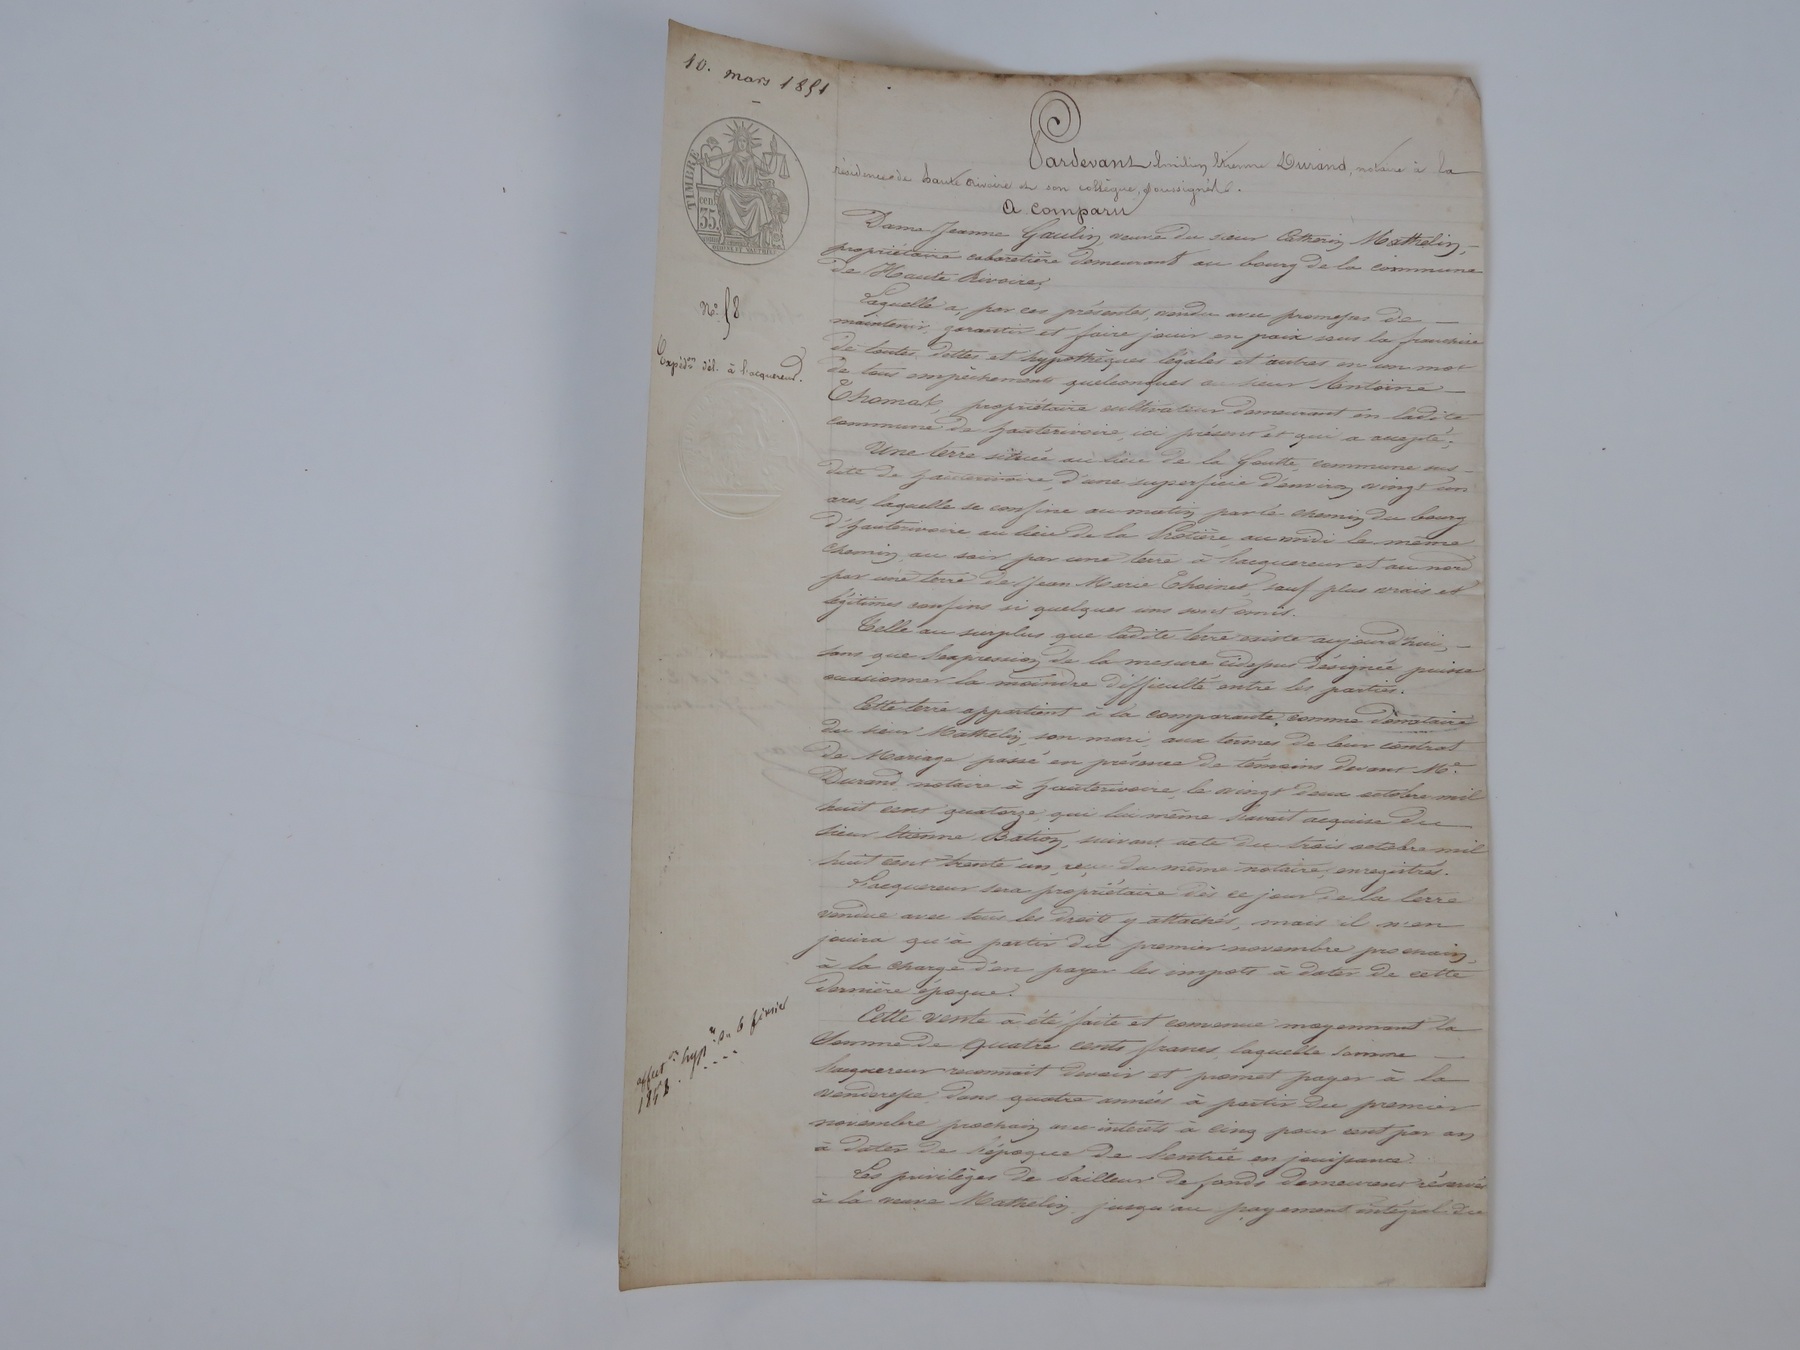 10. mars 1851
TIMBRE
cen.
35.
N.º 58
Expéd.on dél. à l'acquereur.
Pardevant Émilien Étienne Durand, notaire à la
résidence de haute Rivoire et son collègue, soussignés.
A comparu
Dame Jeanne Goulin, veuve du sieur Mathelin,
propriétaire cabaretière demeurant au bourg de la commune
de Haute Rivoire,
Laquelle a, par ces présentes, vendu avec promesse de
maintenir, garantir et faire jouir en paix sous la franchise
de toutes dettes et hypothèques légales et autres en un mot
de tous empêchements quelconques au sieur Antoine
Thomas, propriétaire cultivateur demeurant en ladite
commune de hauterivoire, ici présent et qui a accepté;
Une terre située au lieu de la Goutte, commune sus-
dite de hauterivoire, d'une superficie d'environ vingt un
ares, laquelle se confine au matin par le chemin du bourg
d'hauterivoire au lieu de la au midi le même
chemin, au soir par une terre à l'acquereur et au nord
par une terre de Jean Marie sauf plus vrais et
légitimes confins si quelques uns sont omis.
Telle au surplus que ladite terre existe aujourd'hui,
sans que l'expression de la mesure cidessus désignée puisse
occasionner la moindre difficulté entre les parties.
Cette terre appartient à la comparante, comme donataire
du sieur Mathelin, son mari, aux termes de leur contrat
de Mariage passé en présence de témoins devant Me.
Durand, notaire à hauterivoire, le vingt deux octobre mil
huit cent quatorze, qui lui même l'avait acquise du
sieur Étienne suivant acte du trois octobre mil
huit cent trente un, reçu du même notaire, enregistrés.
L'acquereur sera propriétaire dès ce jour de la terre
vendue avec tous les droits y attachés, mais il n'en
jouira qu'à partir du premier novembre prochain,
à la charge d'en payer les impots à dater de cette
dernière époque.
Cette vente a été faite et convenue moyennant la
Somme de quatre cents francs, laquelle somme
l'acquereur reconnait devoir et promet payer à la
venderesse dans quatre années à partir du premier
novembre prochain avec intérêts à cinq pour cent par an
à dater de l'époque de l'entrée en jouissance.
Les privilèges de bailleur de fonds demeurent réservés
à la veuve Mathelin, jusqu'au payement intégral du
hyp. du 6 février